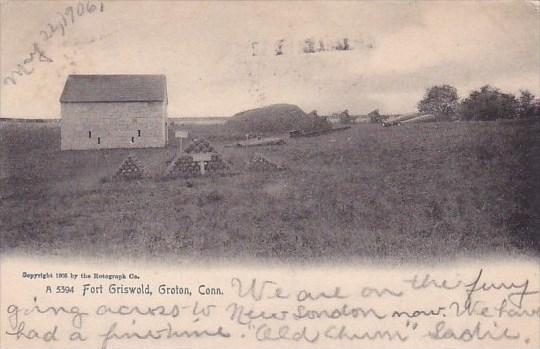 May 22/1906.
Copyright 1905 by the Rotograph Co.
A 5394 Fort Griswold, Groton, Conn.
We are on the fury
going across to New London now. We have
had a fine time. "Old Chum" Sadie.